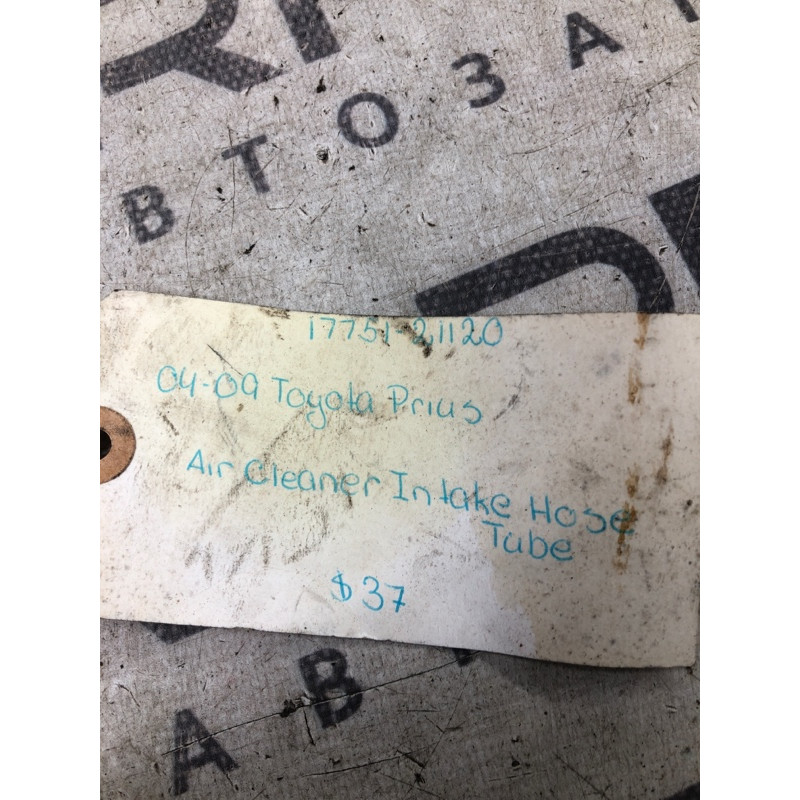 ВТОЗА
17751-21120
04-09 Toyota Prius
Air Cleaner Intake Hose
Tube
$37
АВ